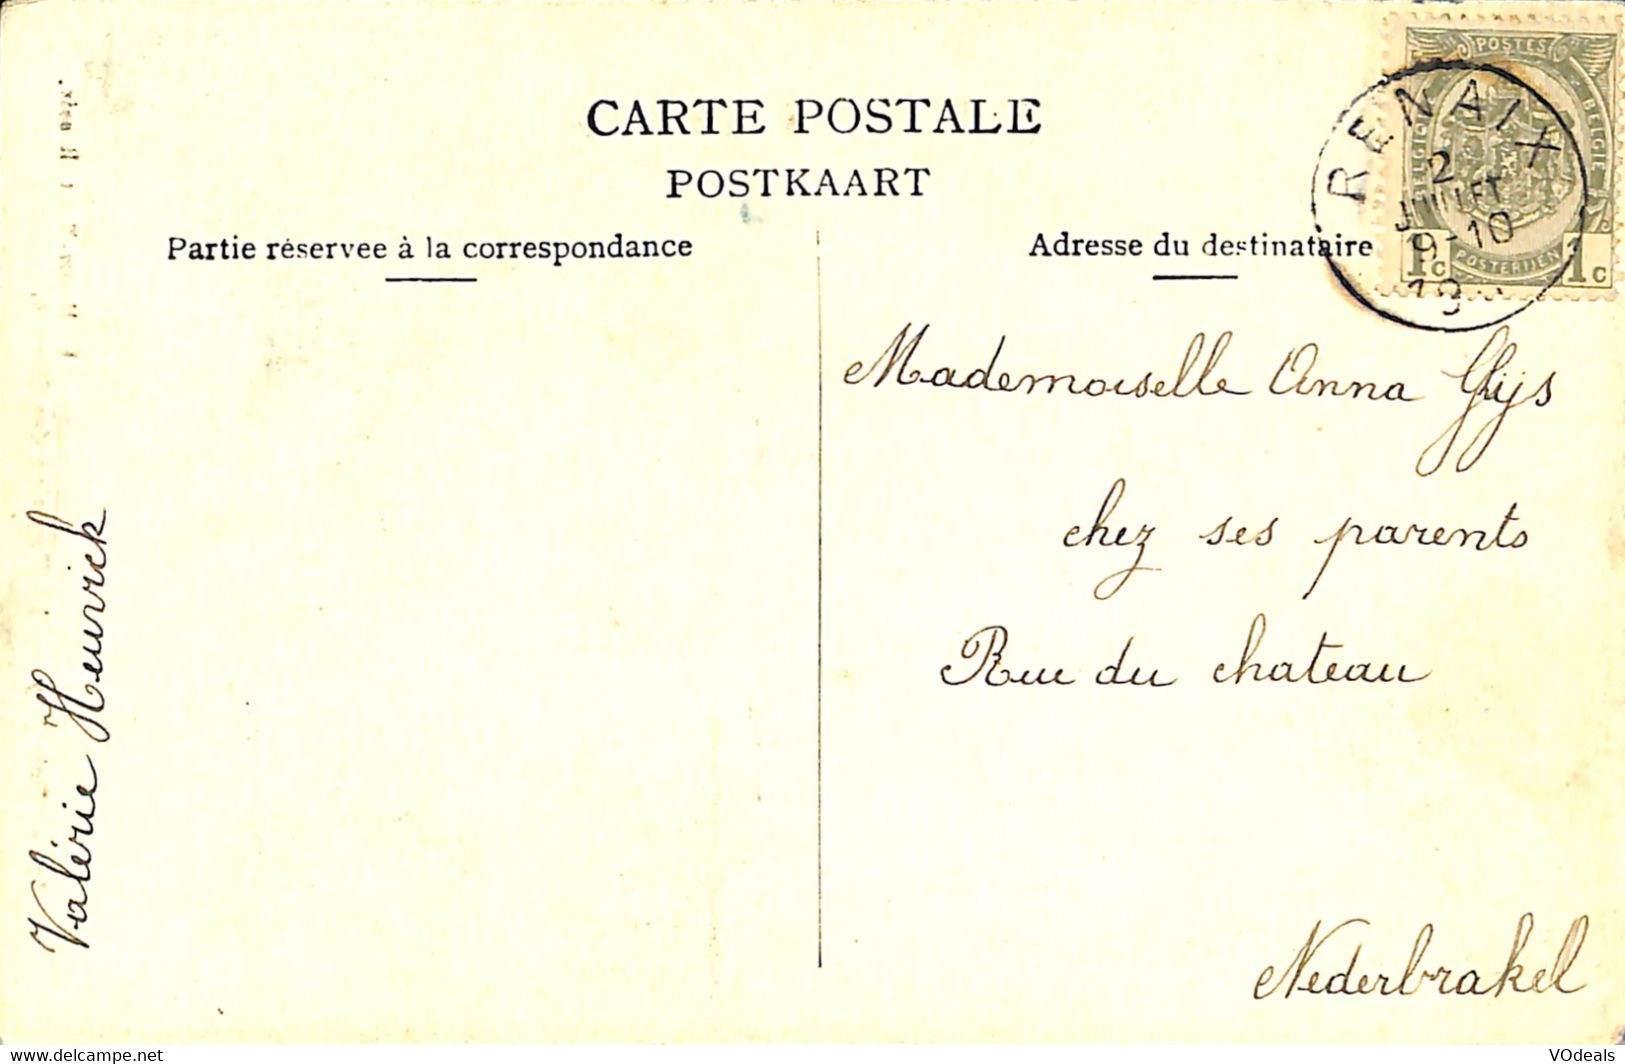 CARTE POSTALE
POSTKAART
Partie réservee à la correspondance
Adresse du destinataire
POSTES
BELGIQUE
BELGIE
POSTERIJEN
1c 1c
RENAIX
2
JUILLET
9-10
19
Mademoiselle Anna Gijs
chez ses parents
Rue du chateau
Nederbrakel
Valérie Heuvick
VOdeals
www.delcampe.net